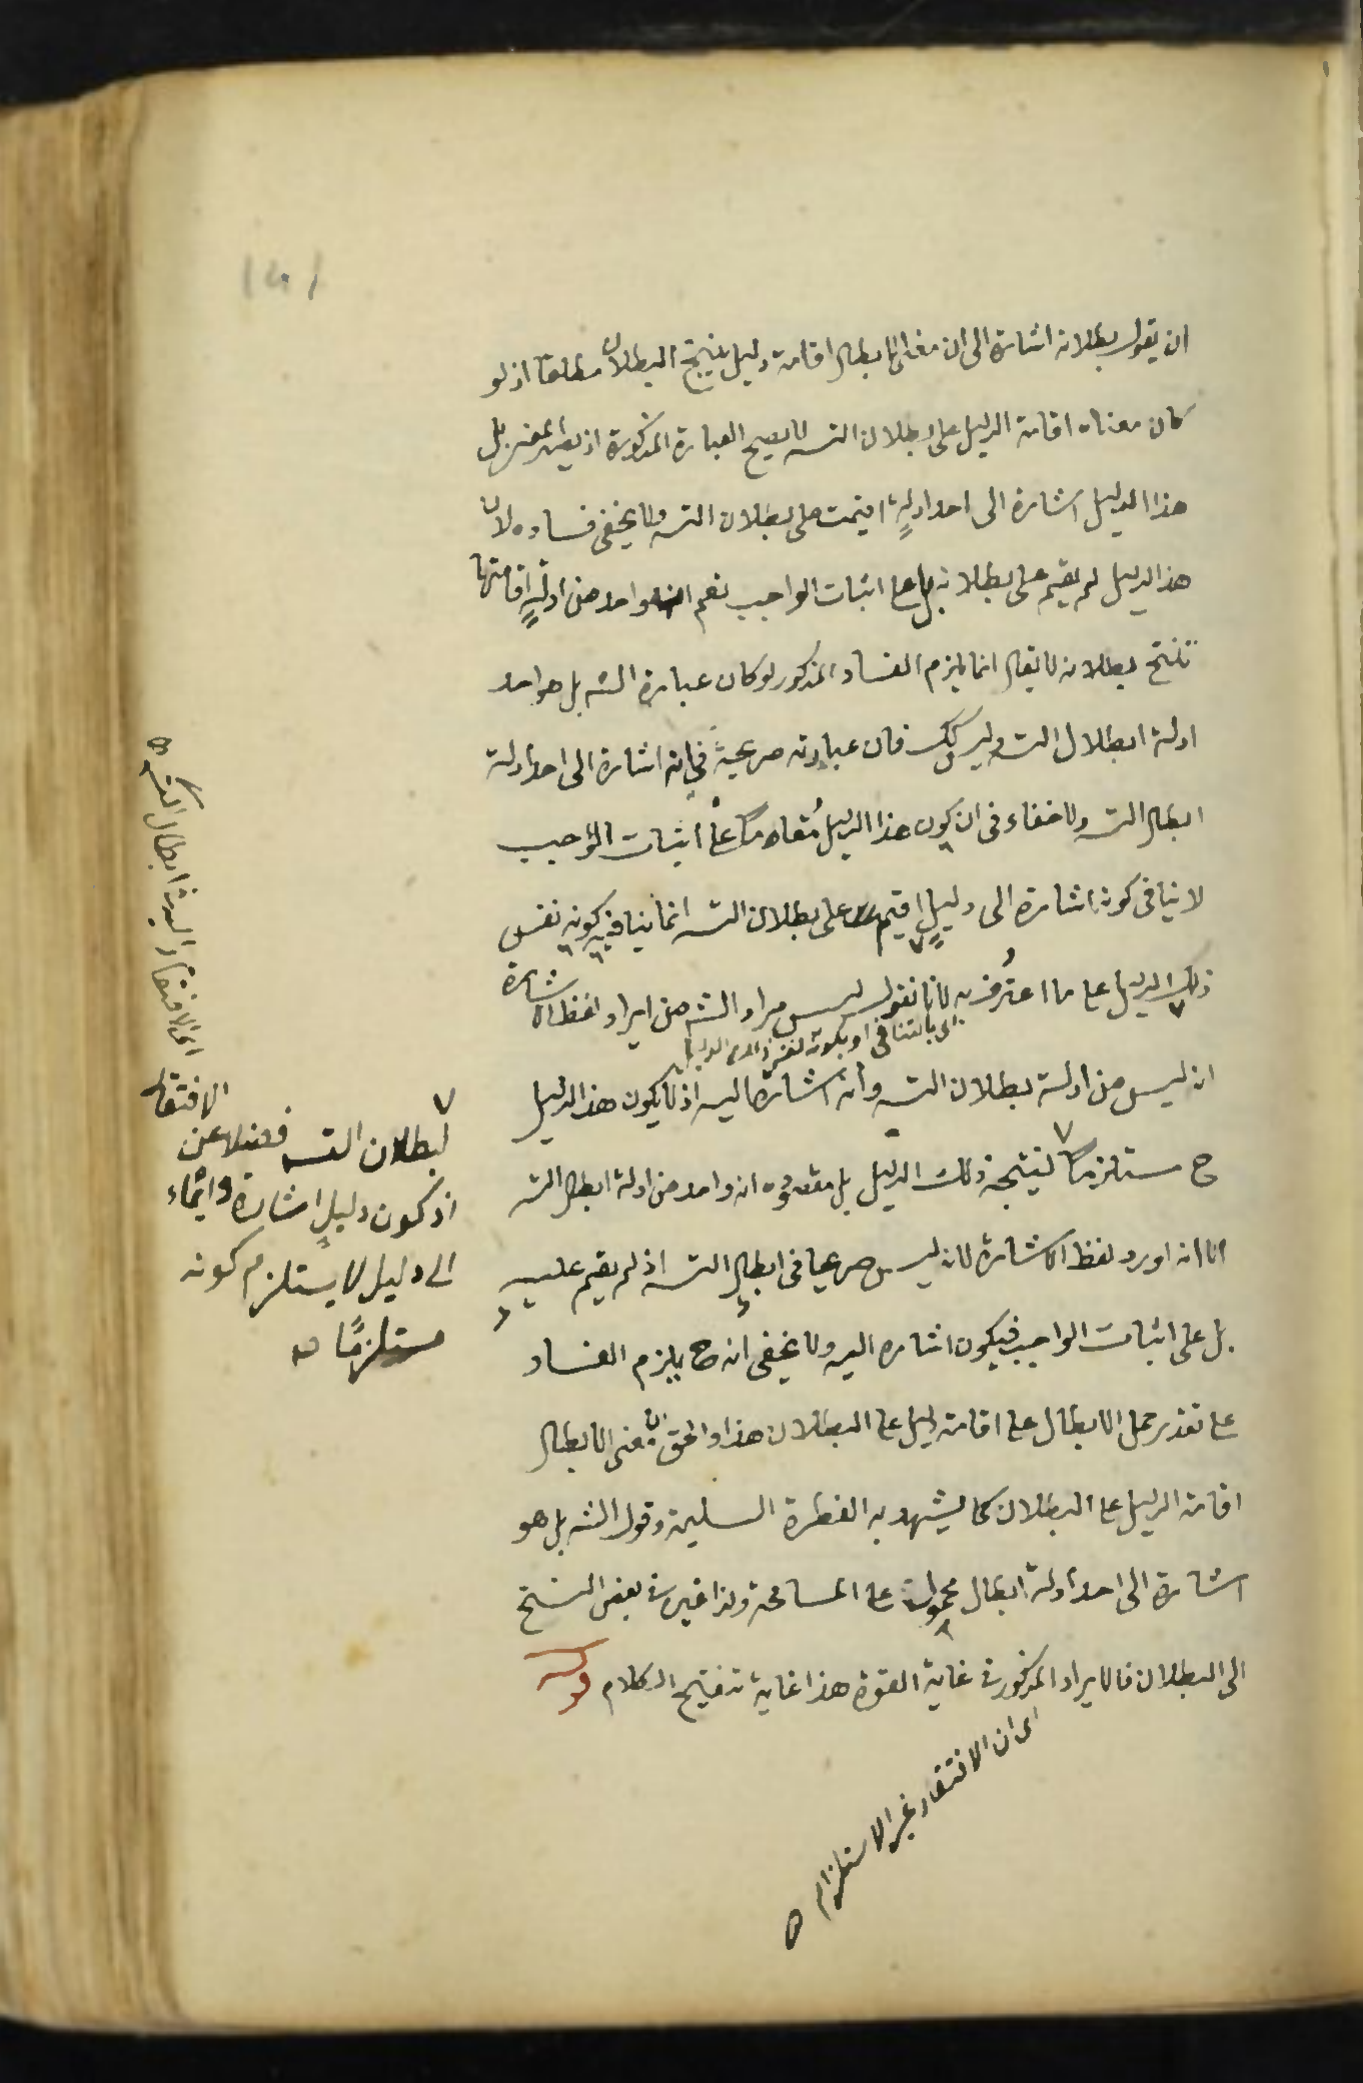 ان يقول بطلانه اشارة الى ان معنى الابطال اقامة دليل ينتج البطلان مطلقا اذ لو
كان معناه اقامة الدليل على بطلان التسـ لا يصح العبارة المذكورة اذ يصير المعنى بل
هذا الدليل اشارة الى احد ادلةٍ اقيمت على بطلان التسـ ولا يخفى فساده لان
هذا الدليل لم يقم على بطلانه بل على اثبات الواجب نعم انه واحد من ادلةٍ اقامتها
تنتج بطلانه لا يقال انما يلزم الفساد المذكور لو كان عبارة الشـ بل هو احد
ادلة ابطال التسـ وليس كك فان عبارته صريحة في انه اشارة الى احد ادلة
ابطال التسـ ولا خفاء فى ان كون هذا الدليل مُقاما على اثبات الواجب
لا ينافى كونه اشارة الى دليلٍ اقيم على بطلان التسـ انما ينافيه كونه نفس
ذلك الدليل على ما اعتُرف به لانا نقول ليس مراد الشـ من ايراد لفظ الاشارة
اى بالتنافى او بكونه نفس ذلك الدليل
انه ليس من ادلة بطلان التسـ وانه اشارة اليه اذ لا يكون هذا الدليل
ح مستلزما لنتيجة ذلك الدليل بل مقصوده انه واحد من ادلة ابطال التسـ
الا انه اورد لفظ الاشارة لانه ليس صريحا فى ابطال التسـ اذ لم يقم عليه
بل على اثبات الواجب فيكون اشارة اليه ولا يخفى انه ح يلزم الفساد
على تقدير حمل الابطال على اقامة دليل على البطلان هذا والحق ان معنى الابطال
اقامة الدليل على البطلان كما يشهد به الفطرة السليمة وقول الشـ بل هو
اشارة الى احد ادلة ابطال محمولة على المسامحة ولذا غيره فى بعض النسخ
الى البطلان فالايراد المذكور فى غاية القوة هذا غاية تنقيح الكلام قوله
اى ان الافتقار غير الاستلزام
لبطلان التسـ فضلا عن الافتقار
اذ كون دليلٍ اشارة وايماء
الى دليل لا يستلزم كونه
مستلزمًا